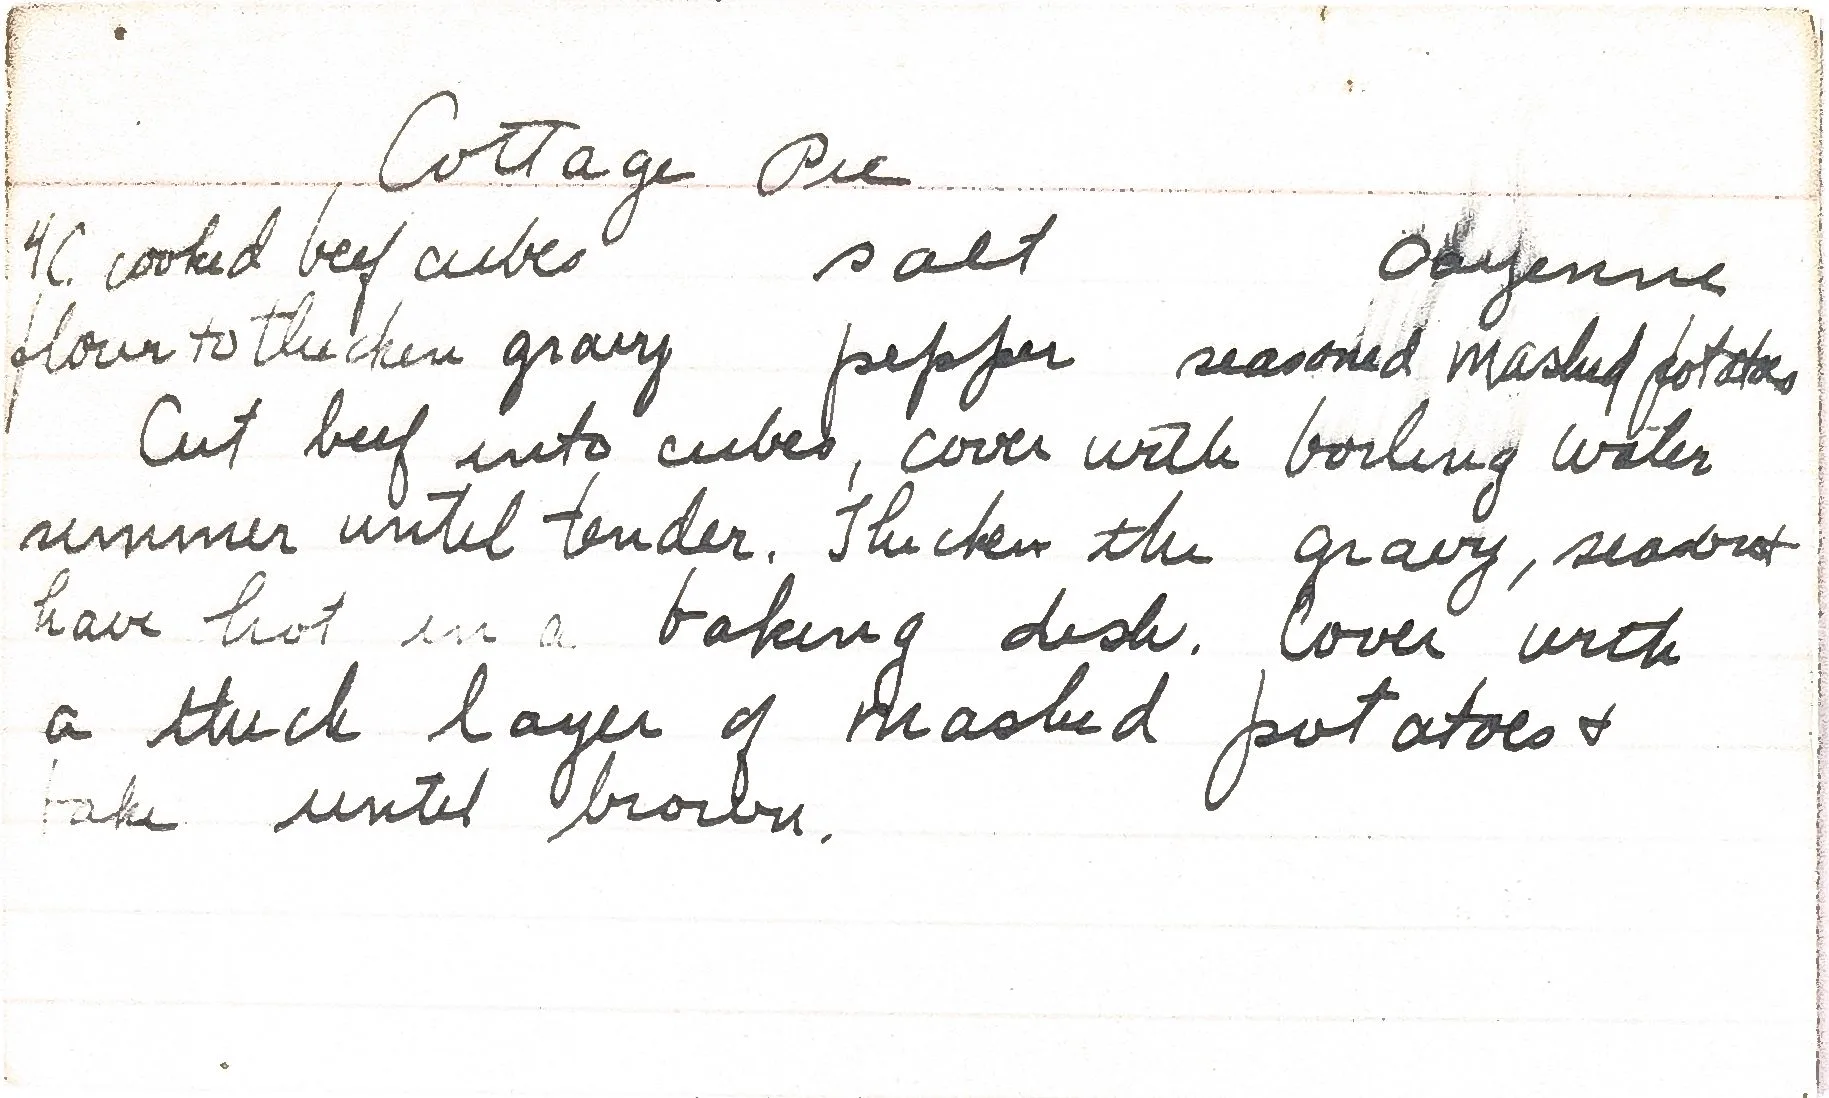 Cottage Pie
4C. cooked beef cubes salt Cayenne
flour to thicken gravy pepper seasoned mashed potatoes
Cut beef into cubes, cover with boiling water
simmer until tender. Thicken the gravy, season +
have hot in a baking dish. Cover with
a thick layer of mashed potatoes +
bake until brown.